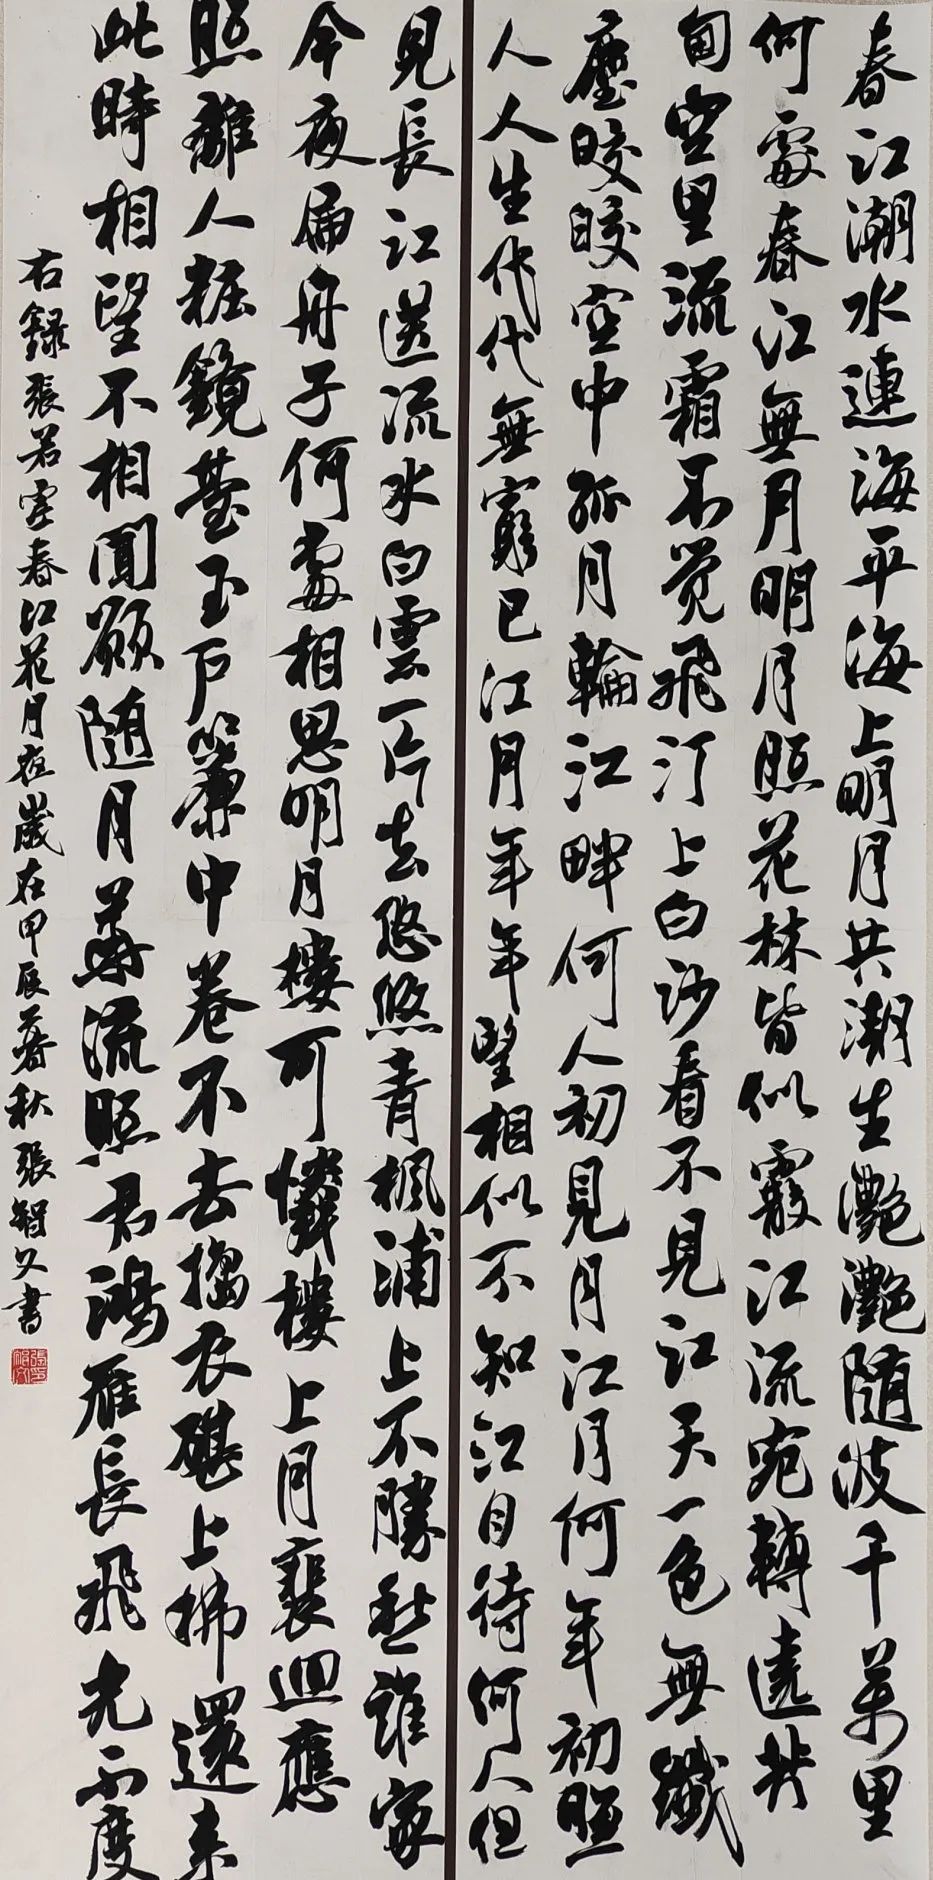 春江潮水連海平海上明月共潮生灧灧随波千萬里
何處春江無月明月照花林皆似霰江流宛轉遶芳
甸空里流霜不觉飛汀上白沙看不見江天一色無纖
塵皎皎空中孤月輪江畔何人初見月江月何年初照
人人生代代無窮已江月年年望相似不知江月待何人但
見長江送流水白雲一片去悠悠青楓浦上不勝愁誰家
今夜扁舟子何處相思明月樓可憐樓上月裴迴應
照離人粧鏡臺玉戶簾中卷不去擣衣砧上拂還来
此時相望不相聞願随月華流照君鴻雁長飛光不度
右録張若虚春江花月夜歲在甲辰暮秋張智文書